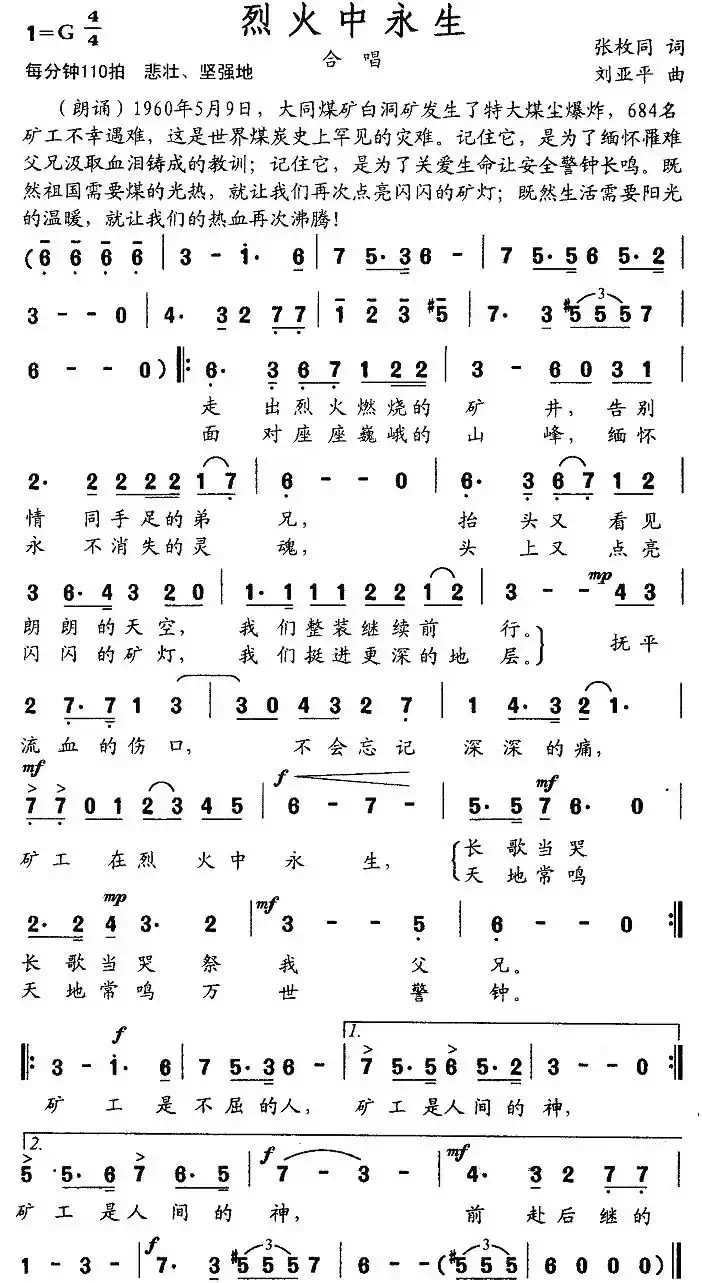 烈火中永生
1=G 4/4
合 唱
张枚同 词
每分钟110拍 悲壮、坚强地
刘亚平 曲
（朗诵）1960年5月9日，大同煤矿白洞矿发生了特大煤尘爆炸，684名
矿工不幸遇难，这是世界煤炭史上罕见的灾难。记住它，是为了缅怀罹难
父兄汲取血泪铸成的教训；记住它，是为了关爱生命让安全警钟长鸣。既
然祖国需要煤的光热，就让我们再次点亮闪闪的矿灯；既然生活需要阳光
的温暖，就让我们的热血再次沸腾！
(6 6 6 6 | 3 - 1· 6 | 7 5·3 6 - | 7 5·5 5 6 5·2 |
3 - - 0 | 4· 3 2 7 7 | 1 2 3 #5 | 7· 3 #5 5 5 7 |
6 - - 0) ‖: 6· 3 6 7 1 2 2 | 3 - 6 0 3 1 |
走 出烈火燃烧的 矿 井，告别
面 对座座巍峨的 山 峰，缅怀
2· 2 2 2 2 1 7 | 6 - - 0 | 6· 3 6 7 1 2 |
情 同手足的弟 兄， 抬 头又 看见
永 不消失的灵 魂， 头 上又 点亮
3 6·4 3 2 0 | 1·1 1 1 2 2 1 2 | 3 - - mp 4 3 |
朗 朗的天空， 我们整装继续前 行。 抚平
闪 闪的矿灯， 我们挺进更深的地 层。
2 7·7 1 3 | 3 0 4 3 2 7 | 1 4·3 2 1· |
流 血的伤口， 不会忘记 深 深的痛，
mf
7 7 0 1 2 3 4 5 | f 6 - 7 - | 5·5 mf 7 6· 0 |
矿工 在烈 火中 永 生， 长歌当哭
天地常鸣
2·2 mp 4 3· 2 | mf 3 - - 5 | 6 - - 0 :‖
长歌当哭 祭 我 父 兄。
天地常鸣 万 世 警 钟。
f 1.
‖: 3 - 1· 6 | 7 5·3 6 - | 7 5·5 6 5·2 | 3 - - 0 :‖
矿 工 是 不 屈的人， 矿 工是人间的 神，
2.
5 5·6 7 6·5 | f 7 - 3 - | mf 4· 3 2 7 7 |
矿 工是人 间的 神， 前 赴后继的
1 - 3 - | f 7· 3 #5 5 5 7 | 6 - - (#5 5 5 | 6 0 0 0) |